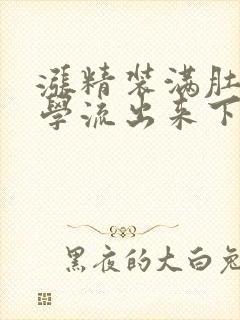 漲精装满肚
學流出来下
黑夜的大白兔